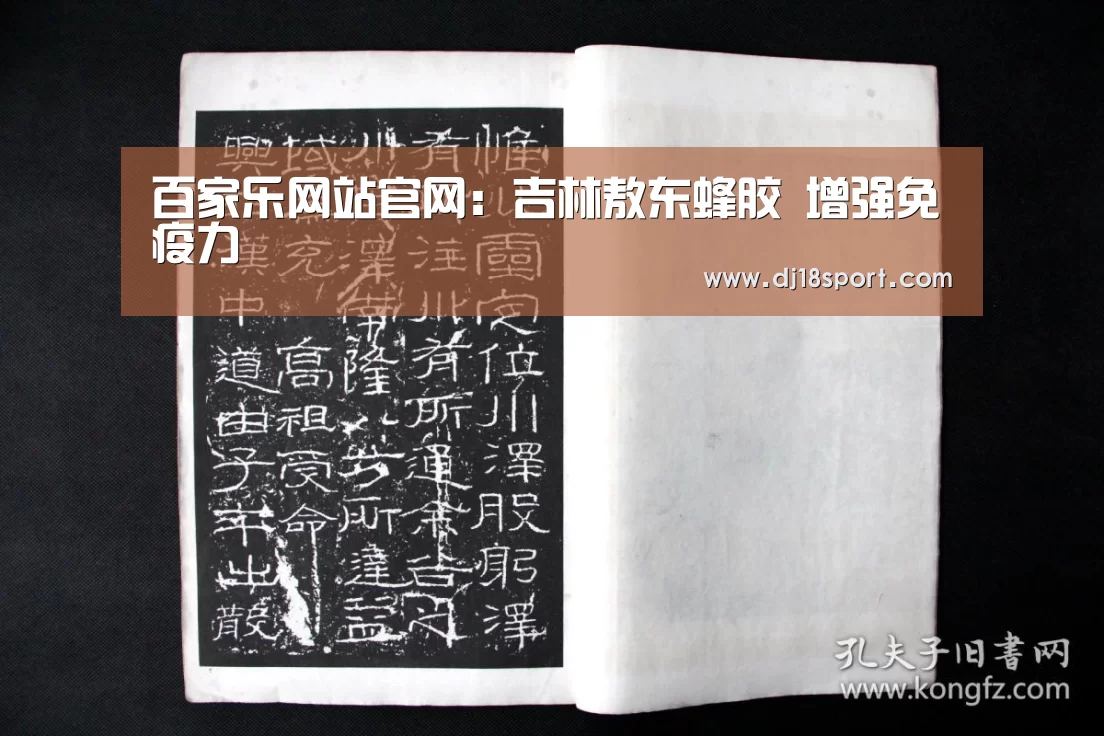 百家乐网站官网：吉林敖东蜂胶 增强免
疫力
www.dj18sport.com
惟靈定位川澤股躬澤
有注川有所通余谷之
川澤南隆八方所達益
域充 高祖受命
興漢中道由子午出散
孔夫子旧書网
www.kongfz.com